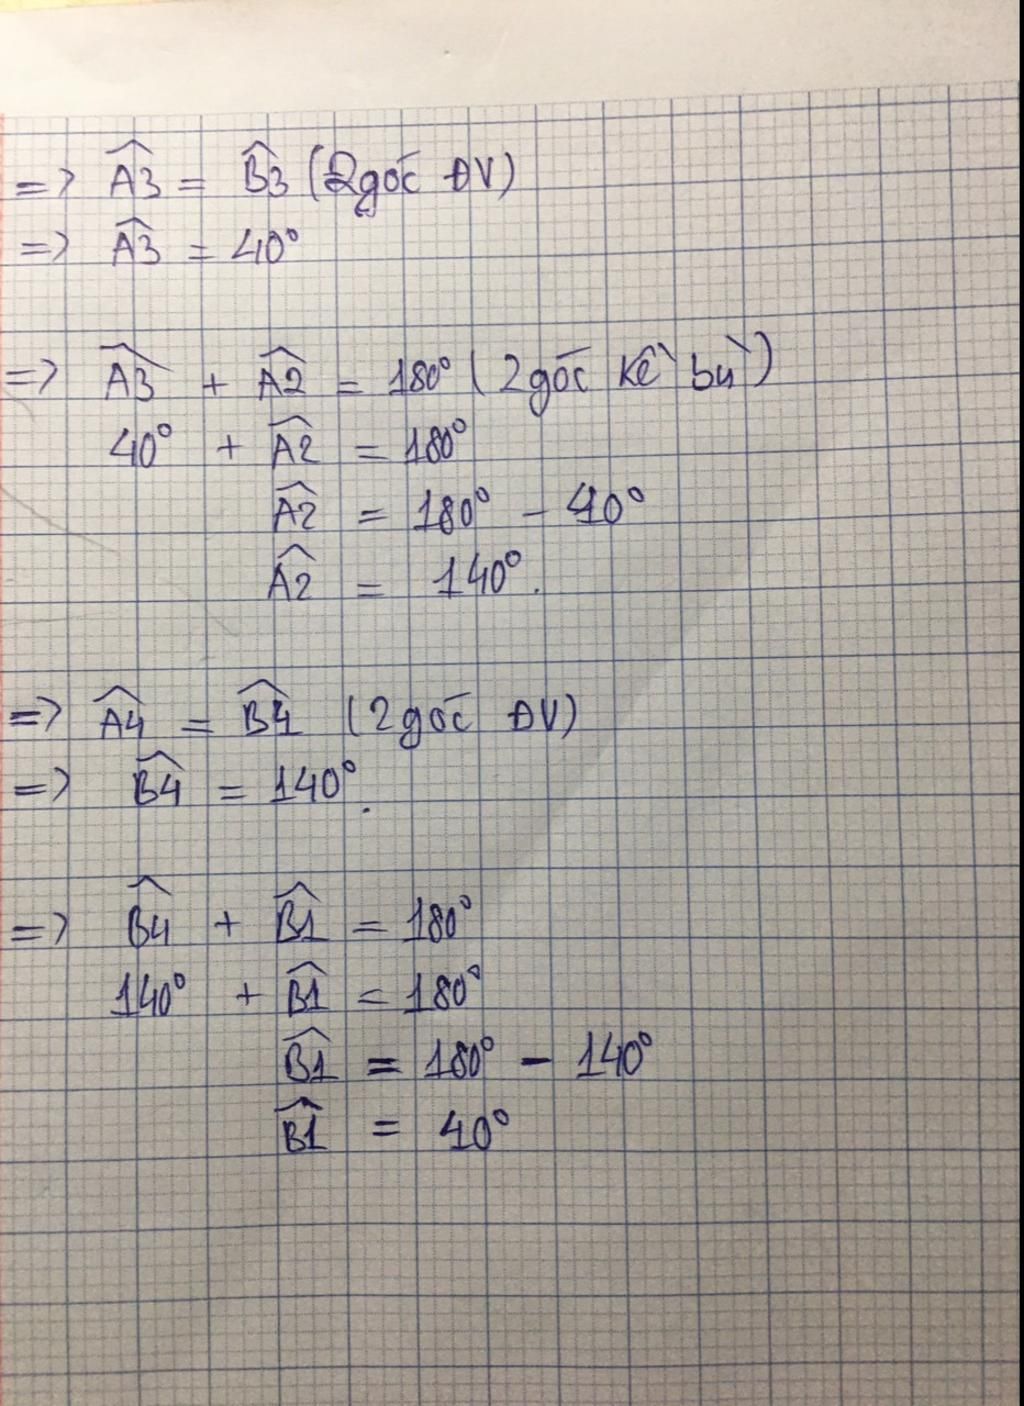 => Â3 = B̂3 (2góc ĐV)
=> Â3 = 40°
=> Â3 + Â2 = 180° (2góc kề bù)
40° + Â2 = 180°
Â2 = 180° - 40°
Â2 = 140°.
=> Â4 = B̂4 (2góc ĐV)
=> B̂4 = 140°.
=> B̂4 + B̂1 = 180°
140° + B̂1 = 180°
B̂1 = 180° - 140°
B̂1 = 40°